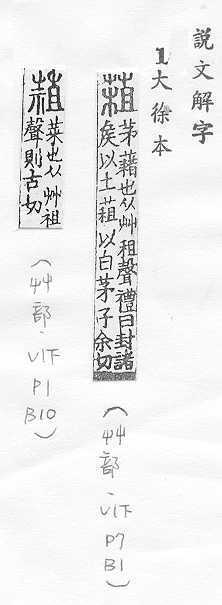 説文解字
1大徐本
蒩
茅藉也从艸租聲禮曰封諸
矦以土蒩以白茅子余切
(艸部.V1下
P7
B1)
菜也从艸祖
聲則古切
(艸部.V1下
P1
B10)